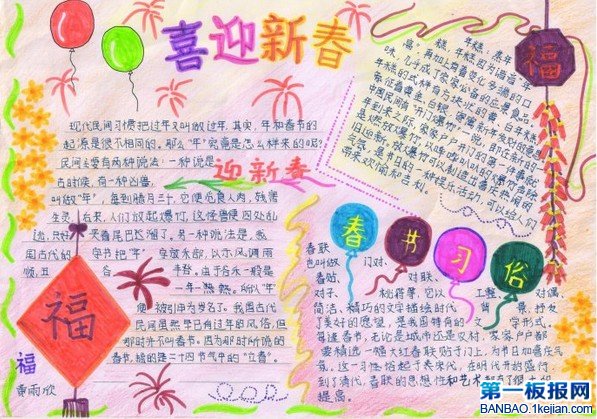 喜迎新春
现代民间习惯把过年又叫做过年。其实，年和春节的
起源是很不相同的。那么"年"究竟是怎么样来的呢？
民间主要有两种说法：一种说是，
古时候，有一种凶兽，
叫做"年"，每到腊月三十，它便
人们放起爆竹
夹着尾巴
另一种说法是，我
国古代的
字把"年"
字放禾部，以示风调雨
顺，五
由于谷禾一般是
一年一熟。所以"年"
便被引申为岁名了。我国古代
民间虽然早已有过年的风俗，但
那时并不叫春节。因为那时所说的
春节，指的是二十四节气中的"立春"。
迎新春
福
福
黄雨欣
年糕：蒸年
糕，年糕因为谐音"年
高"，再加上有着变化多端的口
味，几乎成了家家必备的应景食品。
年糕的式样有方块状的黄、白年糕，
象征着黄金、白银，寄寓新年发财的意思
中国民间有"开门爆竹"一说。即在新年的
到来之际，家家户户开门的第一件事就
是燃放爆竹，以哔哔叭叭的爆竹声除
旧迎新。放爆竹可以创造出喜庆热闹的
气氛，是节日的一种娱乐活动，可以给人们
带来欢愉和吉利。
福
春节习俗
春联
也叫做
门对、
春贴、
对联、
对子、
桃符等，它以
工整、
对偶、
简洁、精巧的文字描绘时代
背
景，抒发
了美好的愿望，是我国特有的文
学形式。
每逢春节，无论是城市还是农村，家家户户都
要精选一幅大红春联贴于门上，为节日加喜庆气
氛。这一习俗起于
宋代，在明代开始盛行，
到了清代，春联的思想性和艺术
都有了很大的
提高。
第一板报网
BANBAO.1kejian.com